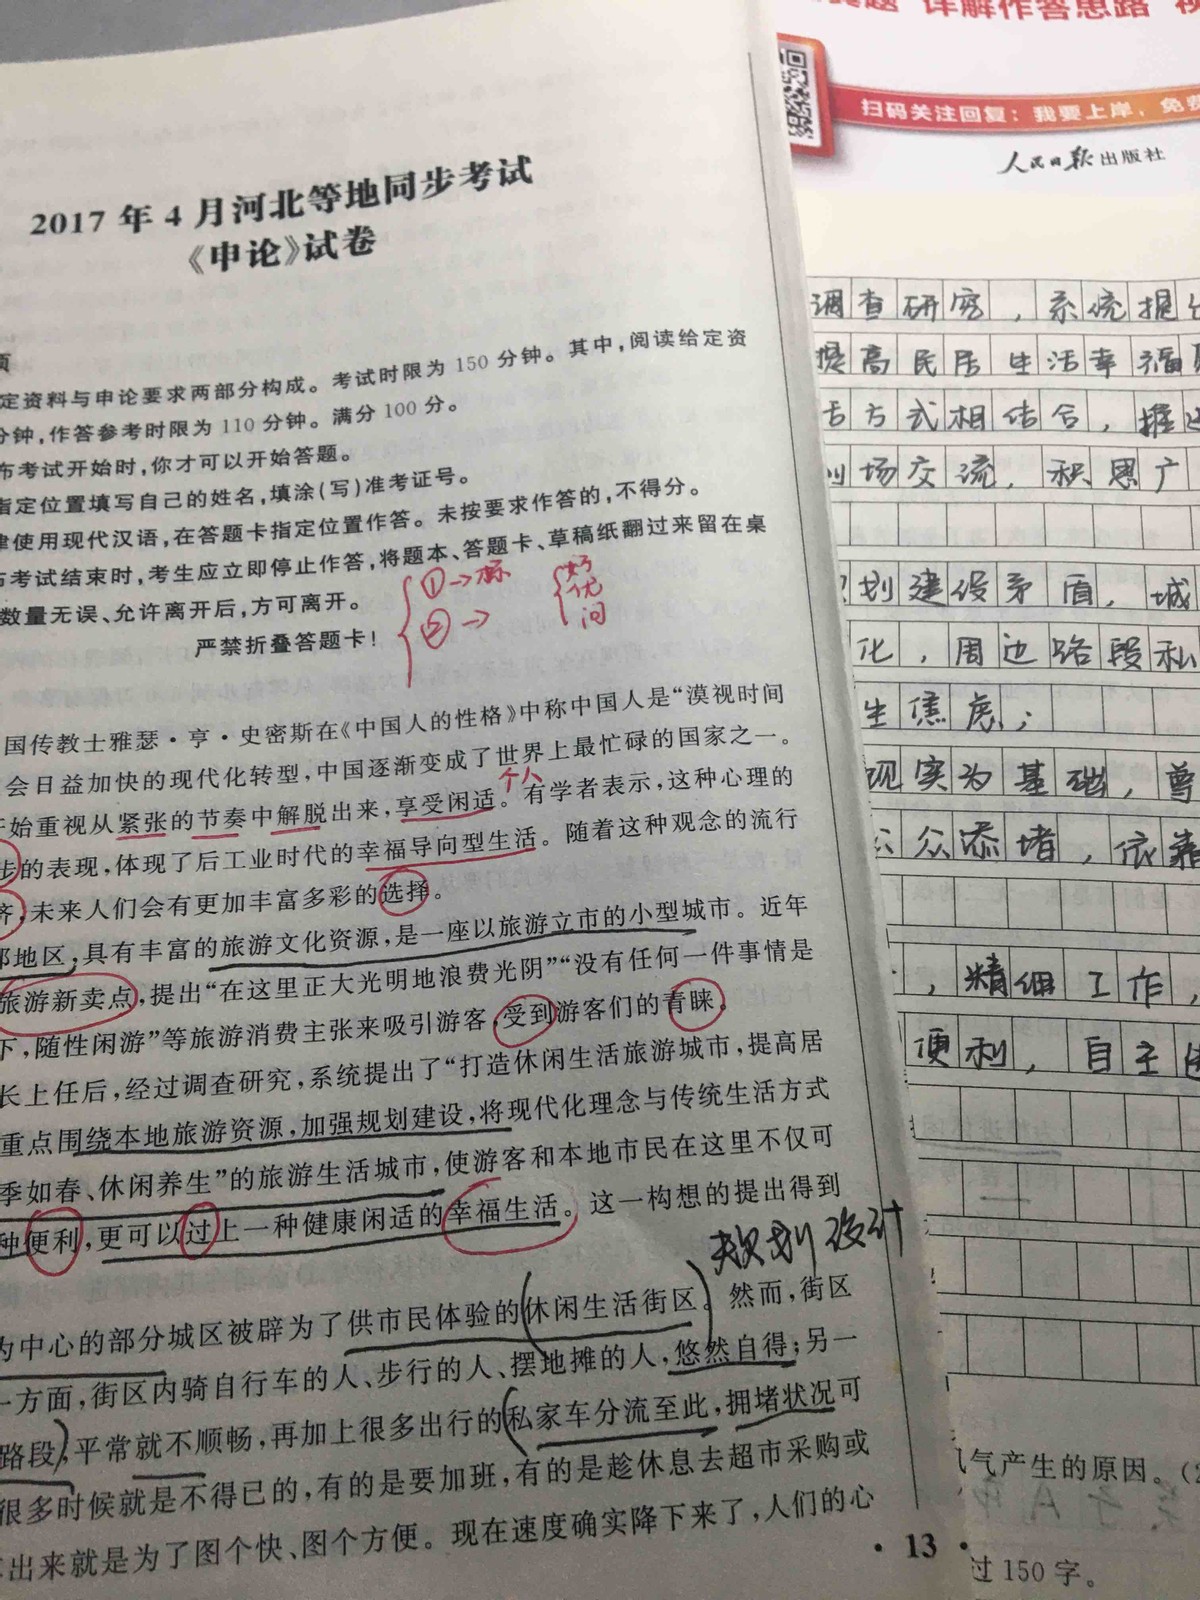 2017年4月河北等地同步考试
《申论》试卷
项
定资料与申论要求两部分构成。考试时限为150分钟。其中,阅读给定资
分钟,作答参考时限为110分钟。满分100分。
布考试开始时,你才可以开始答题。
指定位置填写自己的姓名,填涂(写)准考证号。
律使用现代汉语,在答题卡指定位置作答。未按要求作答的,不得分。
考试结束时,考生应立即停止作答,将题本、答题卡、草稿纸翻过来留在桌
数量无误、允许离开后,方可离开。
严禁折叠答题卡!
①→标
②→
好
优
问
国传教士雅瑟·亨·史密斯在《中国人的性格》中称中国人是“漠视时间
会日益加快的现代化转型,中国逐渐变成了世界上最忙碌的国家之一。
个人
开始重视从紧张的节奏中解脱出来,享受闲适。有学者表示,这种心理的
步的表现,体现了后工业时代的幸福导向型生活。随着这种观念的流行
济,未来人们会有更加丰富多彩的选择。
部地区,具有丰富的旅游文化资源,是一座以旅游立市的小型城市。近年
旅游新卖点,提出“在这里正大光明地浪费光阴”“没有任何一件事情是
下,随性闲游”等旅游消费主张来吸引游客,受到游客们的青睐。
长上任后,经过调查研究,系统提出了“打造休闲生活旅游城市,提高居
重点围绕本地旅游资源,加强规划建设,将现代化理念与传统生活方式
季如春、休闲养生”的旅游生活城市,使游客和本地市民在这里不仅可
种便利,更可以过上一种健康闲适的幸福生活。这一构想的提出得到
规划设计
为中心的部分城区被辟为了供市民体验的休闲生活街区。然而,街区
一方面,街区内骑自行车的人、步行的人、摆地摊的人,悠然自得;另一
路段,平常就不顺畅,再加上很多出行的私家车分流至此,拥堵状况可
很多时候就是不得已的,有的是要加班,有的是趁休息去超市采购或
出来就是为了图个快、图个方便。现在速度确实降下来了,人们的心
·13·
详解作答思路
扫码关注回复:我要上岸,免费
人民日报出版社
调查研究,系统提
提高民居生活幸福
方式相结合,推进
场交流,积思广
划建设矛盾,城
化,周边路段私
生焦虑;
现实为基础,尊
公众添堵,依靠
,精细工作,
便利,自主
气产生的原因。
过150字。